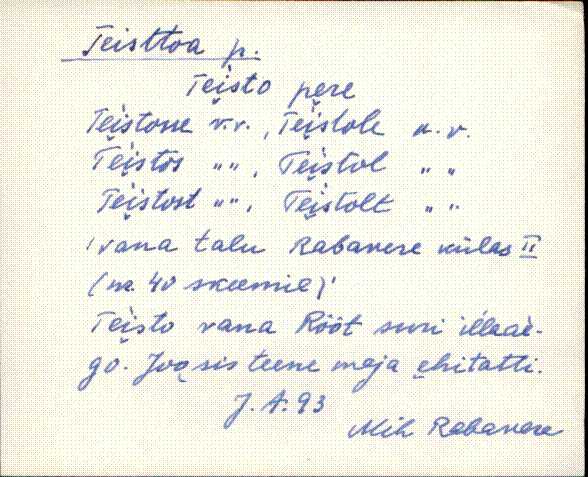 Teisttoa p.
Teisto pere
Teistone v.v., Teistole u.v.
Teistos "", Teistol " "
Teistost "", Teistolt " "
'vana talu Rabavere külas II
(nr. 40 skeemil)'
Teisto vana Rööt suri illaaë-
go. Joq sis teene maja ehitatti.
J. A. 93
Mih Rabavere